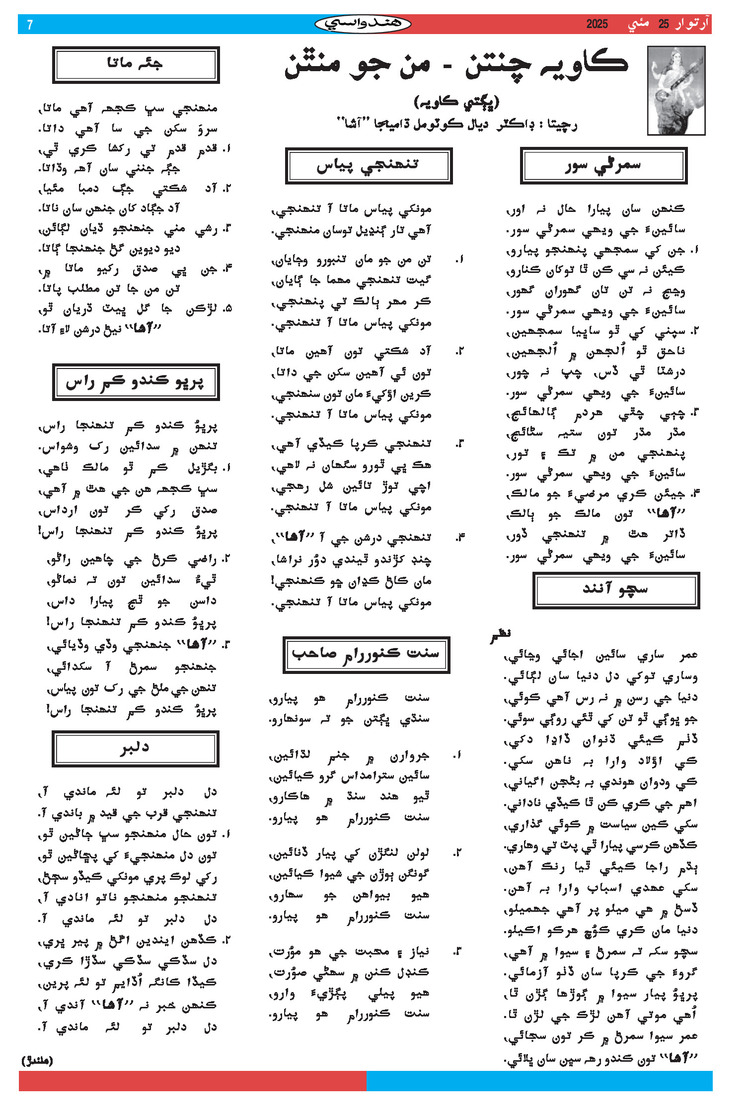 آرتوار 25 مئي 2025
هندواسي
7
ڪاويہ چنتن - من جو منٿن
(ڀڳتي ڪاويہ)
رچيتا : ڊاڪٽر ديال ڪوٽومل ڌاميجا ”آشا“
سمرڻي سور
ڪنهن سان پيارا حال نہ اور،
سائينءَ جي ويهي سمرڻي سور.
۱. جن کي سمجهي پنهنجو پيارو،
ڪيئن نہ سي ڪن ٿا توکان ڪنارو،
وڃڃ نہ تن تان گهوران گهور،
سائينءَ جي ويهي سمرڻي سور.
۲. سپني کي ٿو ساڀيا سمجهين،
ناحق ٿو اُلجهن ۾ اُلجهين،
درشٽا ٿي ڏس، چپ نہ چور،
سائينءَ جي ويهي سمرڻي سور.
۳. چپي چٿي هردم ڳالهائج،
مڌر مڌر تون ستيہ سڻائج،
پنهنجي من ۾ تڪ ۽ تور،
سائينءَ جي ويهي سمرڻي سور.
۴. جيئن ڪري مرضيءَ جو مالڪ،
”آشا“ تون مالڪ جو ٻالڪ،
ڏاتر هٿ ۾ تنهنجي ڏور،
سائينءَ جي ويهي سمرڻي سور.
سچو آنند
نظم
عمر ساري سائين اجائي وڃائي،
وساري توکي دل دنيا سان لڳائي.
دنيا جي رسن ۾ نہ رس آهي ڪوئي،
جو ڀوڳي ٿو تن کي ٿئي روڳي سوئي.
ڏٺم ڪيئي ڌنوان ڏاڍا دکي،
کي اؤلاد وارا بہ ناهن سکي.
کي ودوان هوندي بہ بڻجن اگياني،
اهم جي ڪري ڪن ٿا ڪيڏي ناداني.
سکي ڪين سياست ۾ ڪوئي گذاري،
ڪڏهن ڪرسي پيارا ٿي پٽ تي وهاري.
ٻڌم راجا ڪيئي ٿيا رنڪ آهن،
سکي عهدي اسباب وارا بہ آهن.
ڏسڻ ۾ هي ميلو پر آهي جهميلو،
دنيا مان ڪري ڪُوچ هرڪو اڪيلو.
سچو سک تہ سمرڻ ۽ سيوا ۾ آهي،
گروءَ جي ڪرپا سان ڏٺو آزمائي.
پرڀوُ پيار سيوا ۾ ڳوڙها ڳڙن ٿا،
اُهي موتي آهن لڙڪ جي لڙن ٿا.
عمر سيوا سمرڻ ۾ ڪر تون سجائي،
”آشا“ تون ڪندو رهہ سڀن سان ڀلائي.
تنهنجي پياس
مونکي پياس ماتا آ تنهنجي،
آهي تار ڳنڍيل توسان منهنجي.
۱. تن من جو مان تنبورو وڄايان،
گيت تنهنجي مهما جا ڳايان،
ڪر مهر ٻالڪ تي پنهنجي،
مونکي پياس ماتا آ تنهنجي.
۲. آد شڪتي تون آهين ماتا،
تون ئي آهين سکن جي داتا،
ڪرين اؤکيءَ مان تون سنهنجي،
مونکي پياس ماتا آ تنهنجي.
۳. تنهنجي ڪرپا ڪيڏي آهي،
هڪ ڀي ٿورو سگهان نہ لاهي،
اچي توڙ تائين شل رهجي،
مونکي پياس ماتا آ تنهنجي.
۴. تنهنجي درشن جي آ ”آشا“،
چنڊ کڙندو ٿيندي دوُر نراشا،
مان کاڻ کڍان ڇو ڪنهنجي!
مونکي پياس ماتا آ تنهنجي.
سنت ڪنوررام صاحب
سنت ڪنوررام هو پيارو،
سنڌي ڀڳتن جو تہ سونهارو.
۱. جروارن ۾ جنم لڌائين،
سائين سترامداس گرو ڪيائين،
ٿيو هند سنڌ ۾ هاڪارو،
سنت ڪنوررام هو پيارو.
۲. لولن لنگڙن کي پيار ڏنائين،
گونگن ٻوڙن جي شيوا ڪيائين،
هيو بيواهن جو سهارو،
سنت ڪنوررام هو پيارو.
۳. نياز ۽ محبت جي هو موُرت،
ڪنڊل ڪنن ۾ سهڻي صوُرت،
هيو پيلي پڳڙيءَ وارو،
سنت ڪنوررام هو پيارو.
جئہ ماتا
منهنجي سڀ ڪجهہ آهي ماتا،
سروَ سکن جي سا آهي داتا.
۱. قدم قدم تي رکشا ڪري ٿي،
جڳہ جنني سان آهہ وڌاتا.
۲. آد شڪتي جڳ دمبا مئيا،
آد جڳاد کان جنهن سان ناتا.
۳. رشي مني جنهنجو ڌيان لڳائن،
ديو ديوين گڻ جنهنجا ڳاتا.
۴. جن ڀي صدق رکيو ماتا ۾،
تن من جا تن مطلب پاتا.
۵. لڙڪن جا گل ڀيٽ ڌريان ٿو،
”آشا“ نيڻ درشن لاءِ آتا.
پرڀو ڪندو ڪم راس
پرڀوُ ڪندو ڪم تنهنجا راس،
تنهن ۾ سدائين رک وشواس.
۱. بگڙيل ڪم ٿو مالڪ ٺاهي،
سڀ ڪجهہ هن جي هٿ ۾ آهي،
صدق رکي ڪر تون ارداس،
پرڀوُ ڪندو ڪم تنهنجا راس!
۲. راضي ڪرڻ جي چاهين راڻو،
ٿيءُ سدائين تون تہ نماڻو،
داسن جو ٿج پيارا داس،
پرڀوُ ڪندو ڪم تنهنجا راس!
۳. ”آشا“ جنهنجي وڏي وڏيائي،
جنهنجو سمرڻ آ سکدائي،
تنهن جي ملڻ جي رک تون پياس،
پرڀوُ ڪندو ڪم تنهنجا راس!
دلبر
دل دلبر تو لئہ ماندي آ،
تنهنجي قرب جي قيد ۾ باندي آ.
۱. تون حال منهنجو سڀ ڄاڻين ٿو،
تون دل منهنجيءَ کي پڇاڻين ٿو،
رکي لوڪ پري مونکي ڪيڏو سڄڻ،
تنهنجو منهنجو ناتو انادي آ،
دل دلبر تو لئہ ماندي آ.
۲. ڪڏهن ايندين اڱڻ ۾ پير ڀري،
دل سڏڪي سڏڪي سڏڙا ڪري،
ڪيڏا ڪانگہ اُڏايم تو لئہ پرين،
ڪنهن خبر نہ ”آشا“ آندي آ،
دل دلبر تو لئہ ماندي آ.
(هلندڙ)